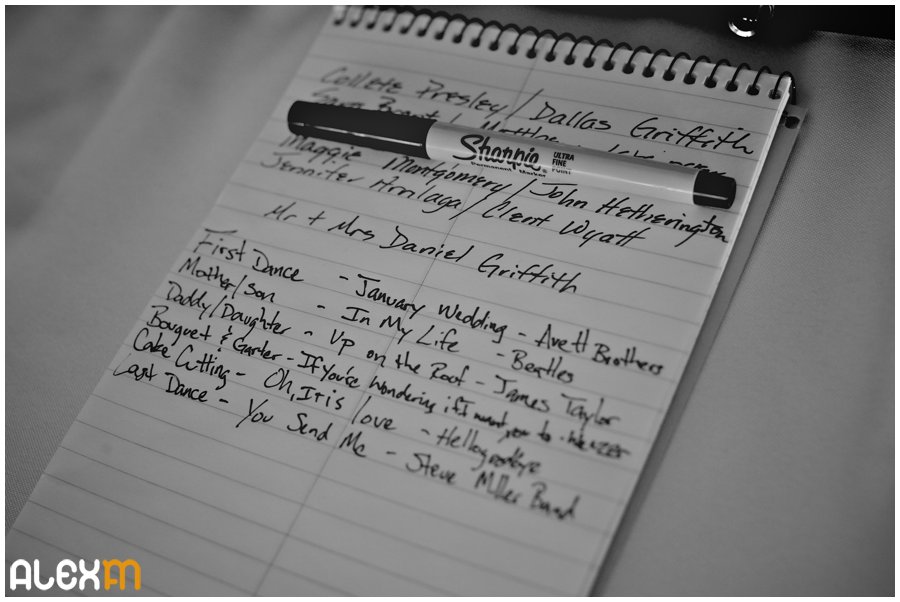 Collete Presley / Dallas Griffith
Sharpie ULTRA FINE POINT
Permanent Marker
Maggie Montgomery / John Hetherington
Jennifer / Clent Wyatt
Mr + Mrs Daniel Griffith
First Dance - January Wedding - Avett Brothers
Mother/Son - In My Life - Beatles
Daddy/Daughter - Up on the Roof - James Taylor
Bouquet & Garter - If you're wondering if I want you to - Weezer
Cake Cutting - Oh, It is love - Hellogoodbye
Last Dance - You Send Me - Steve Miller Band
ALEXFM